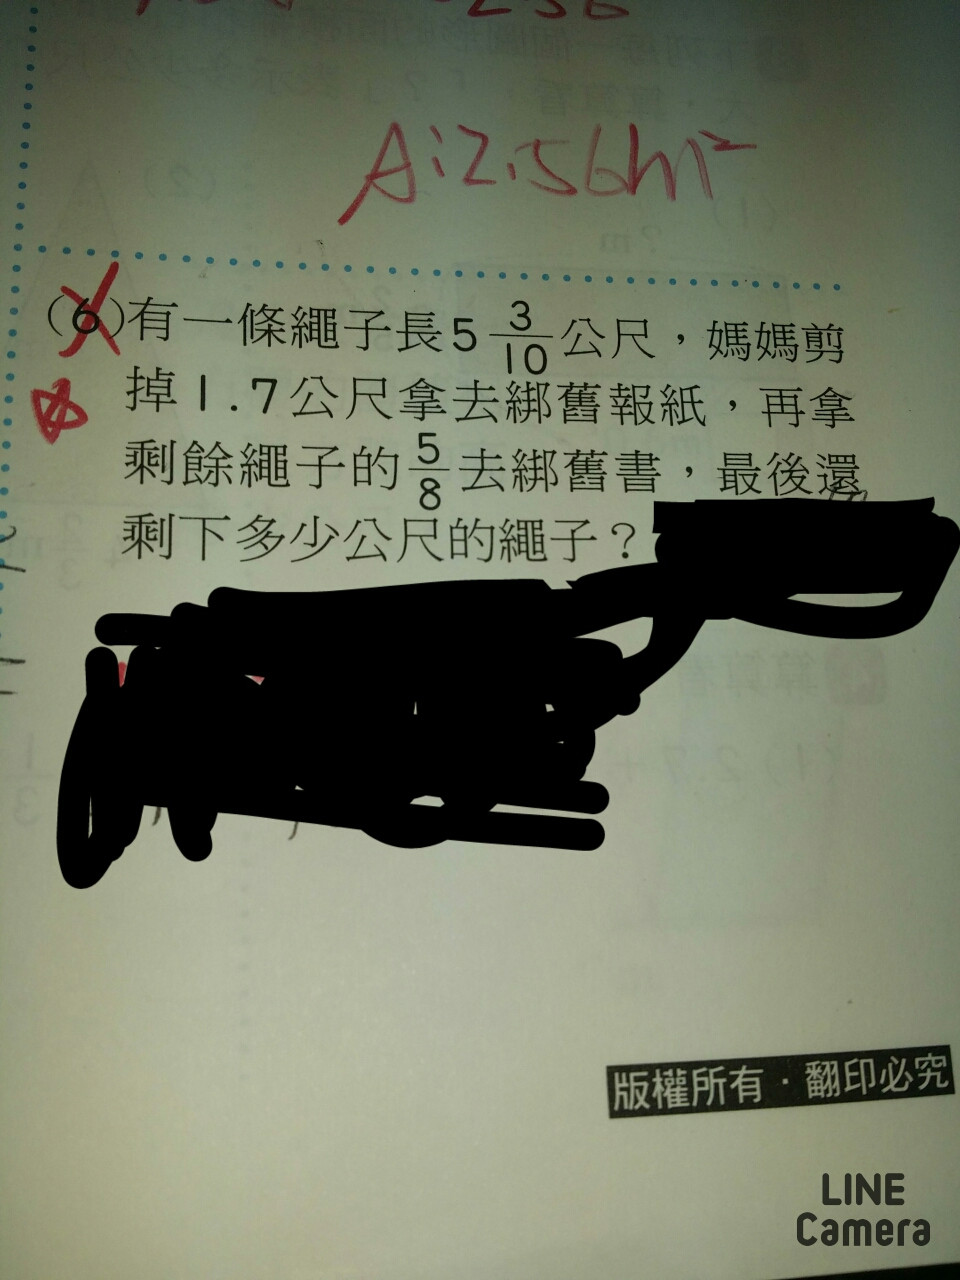 A:2.56m²
(6)有一條繩子長5 3/10 公尺，媽媽剪
掉1.7公尺拿去綁舊報紙，再拿
剩餘繩子的 5/8 去綁舊書，最後還
剩下多少公尺的繩子？
版權所有·翻印必究
LINE
Camera